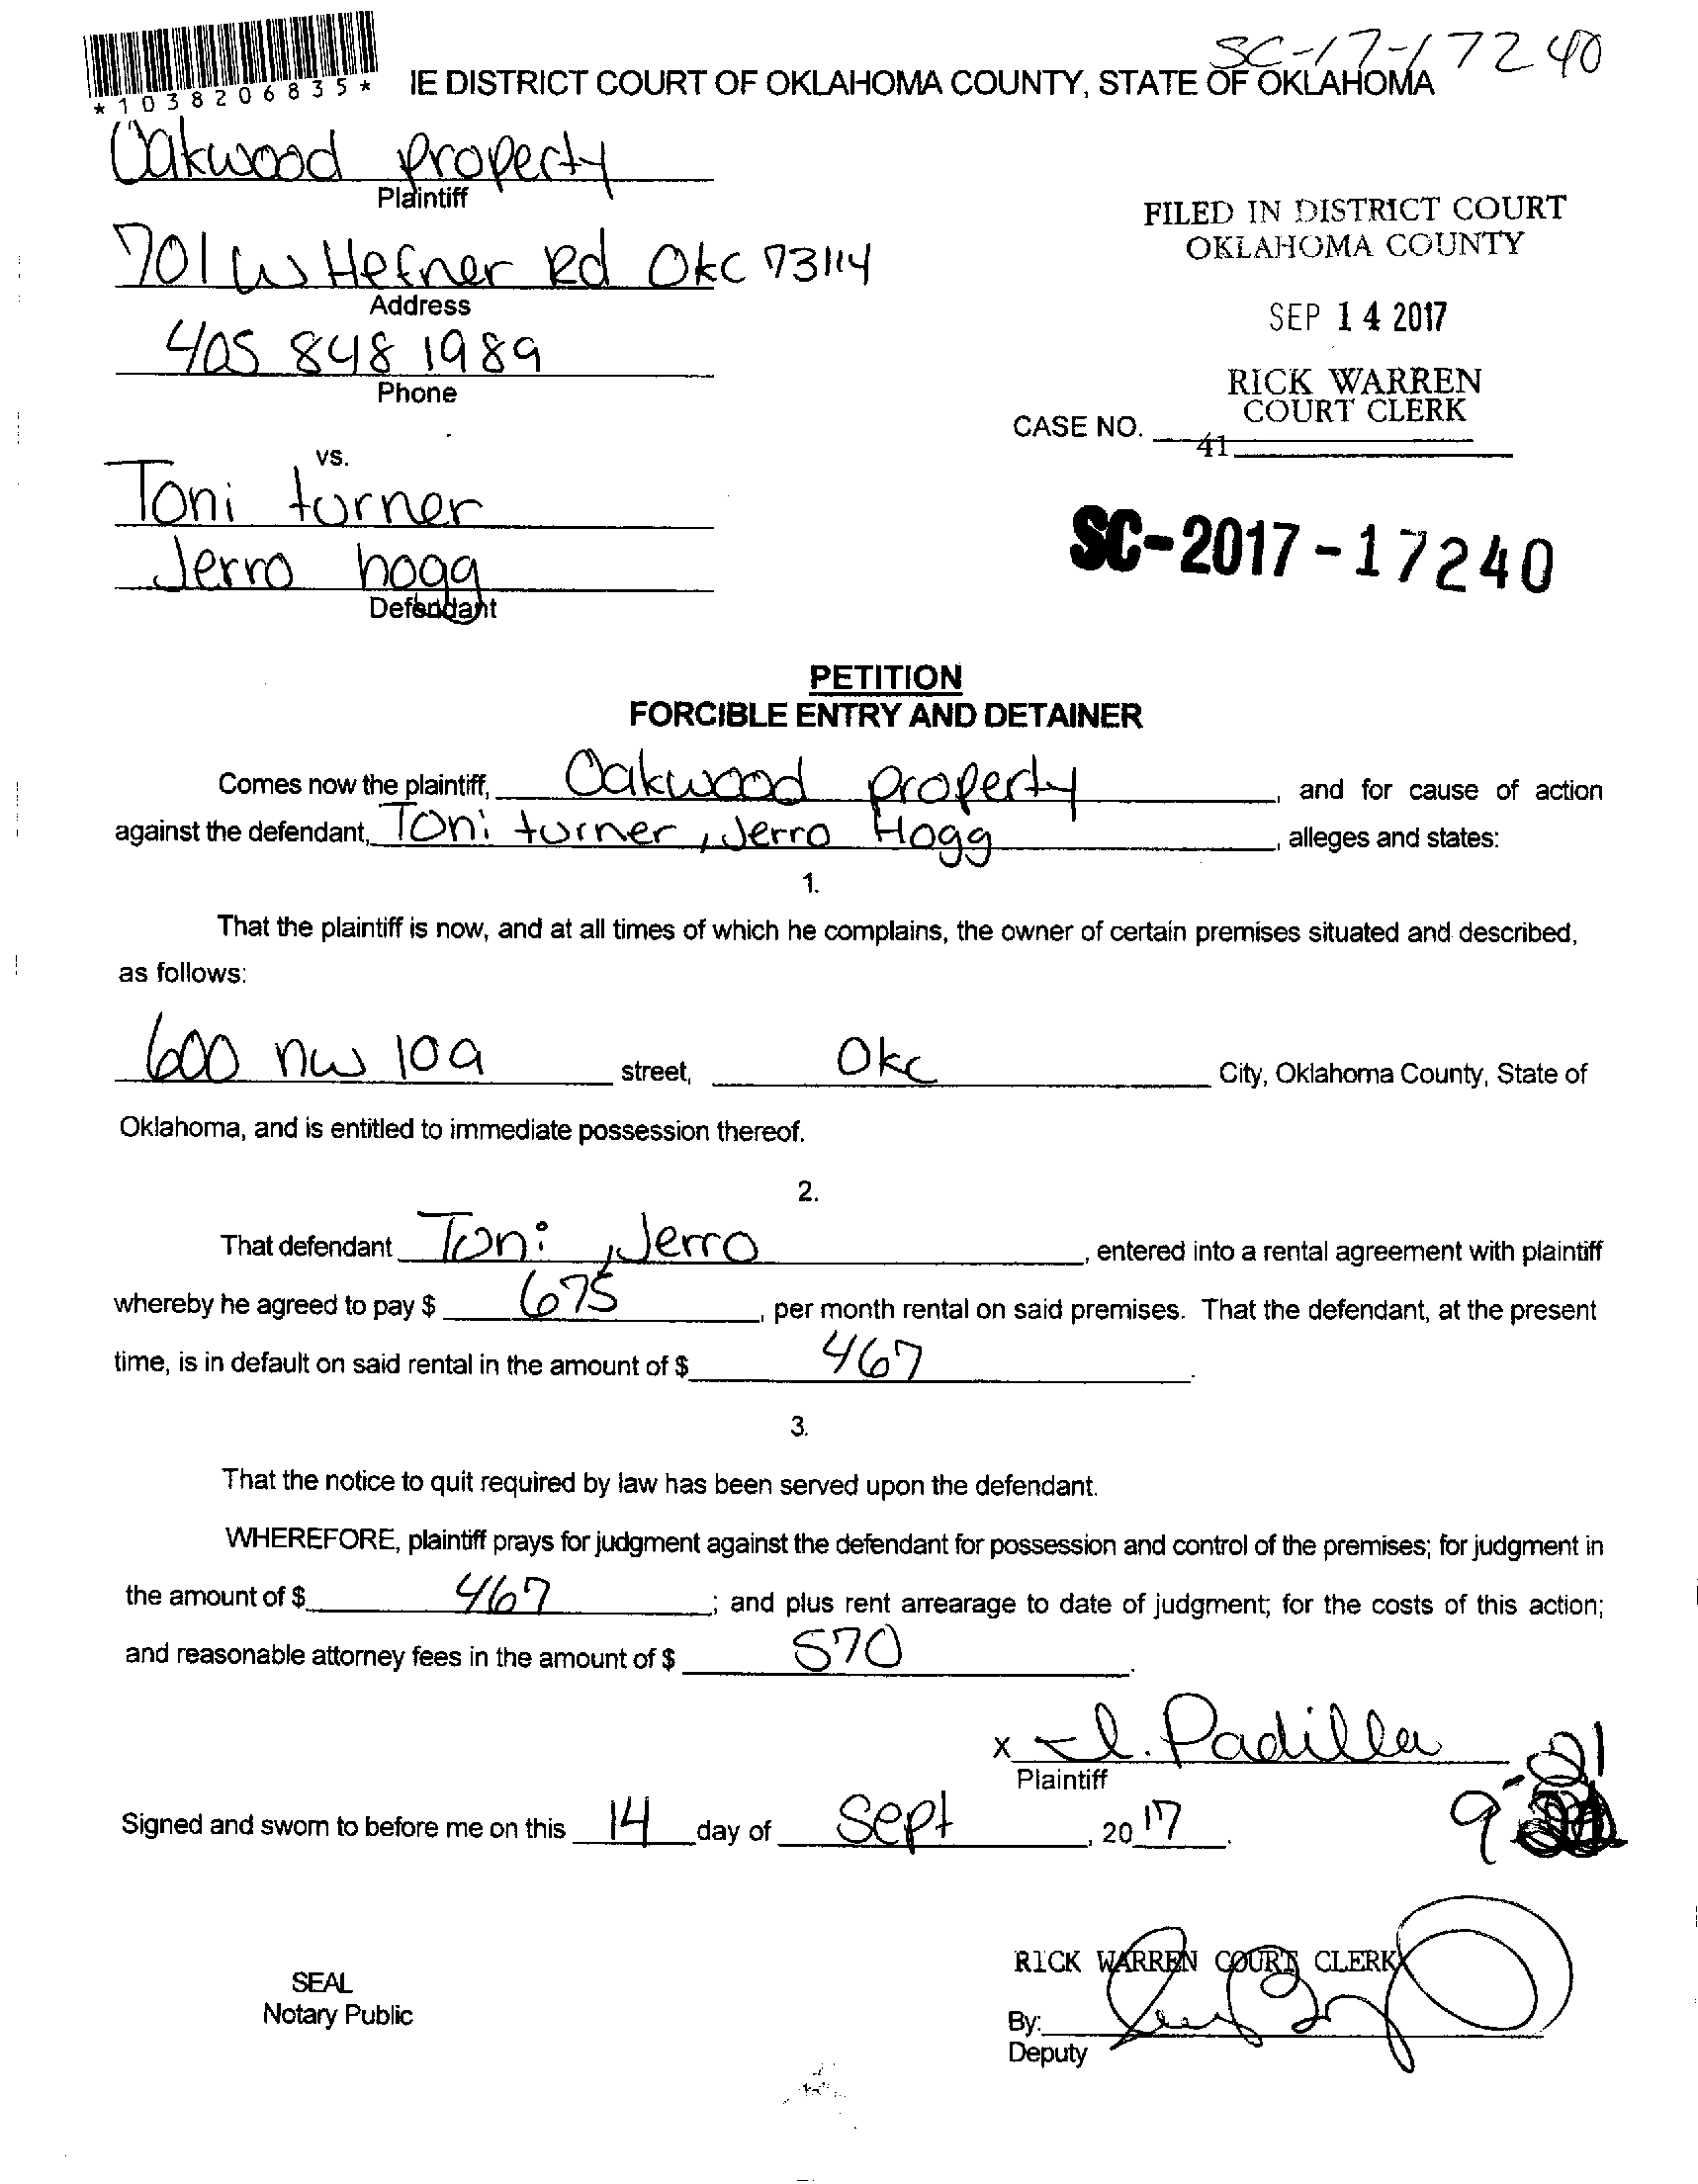 SC-17-17240
*1038206835*
IE DISTRICT COURT OF OKLAHOMA COUNTY, STATE OF OKLAHOMA
Oakwood property
Plaintiff
701 W Hefner Rd OKC 73114
Address
405 848 1989
Phone
FILED IN DISTRICT COURT
OKLAHOMA COUNTY
SEP 14 2017
RICK WARREN
COURT CLERK
CASE NO.
41
vs.
Toni turner
Jerro hogg
Defendant
SC-2017-17240
PETITION
FORCIBLE ENTRY AND DETAINER
Comes now the plaintiff, Oakwood property, and for cause of action
against the defendant, Toni turner, Jerro Hogg, alleges and states:
1.
That the plaintiff is now, and at all times of which he complains, the owner of certain premises situated and described,
as follows:
600 nw 109 street, Okc City, Oklahoma County, State of
Oklahoma, and is entitled to immediate possession thereof.
2.
That defendant Toni, Jerro, entered into a rental agreement with plaintiff
whereby he agreed to pay $ 675, per month rental on said premises. That the defendant, at the present
time, is in default on said rental in the amount of $ 467.
3.
That the notice to quit required by law has been served upon the defendant.
WHEREFORE, plaintiff prays for judgment against the defendant for possession and control of the premises; for judgment in
the amount of $ 467; and plus rent arrearage to date of judgment; for the costs of this action;
and reasonable attorney fees in the amount of $ 570.
x I. Padilla
Plaintiff
9-21
Signed and sworn to before me on this 14 day of Sept, 2017.
SEAL
Notary Public
RICK WARREN COURT CLERK
By:
Deputy